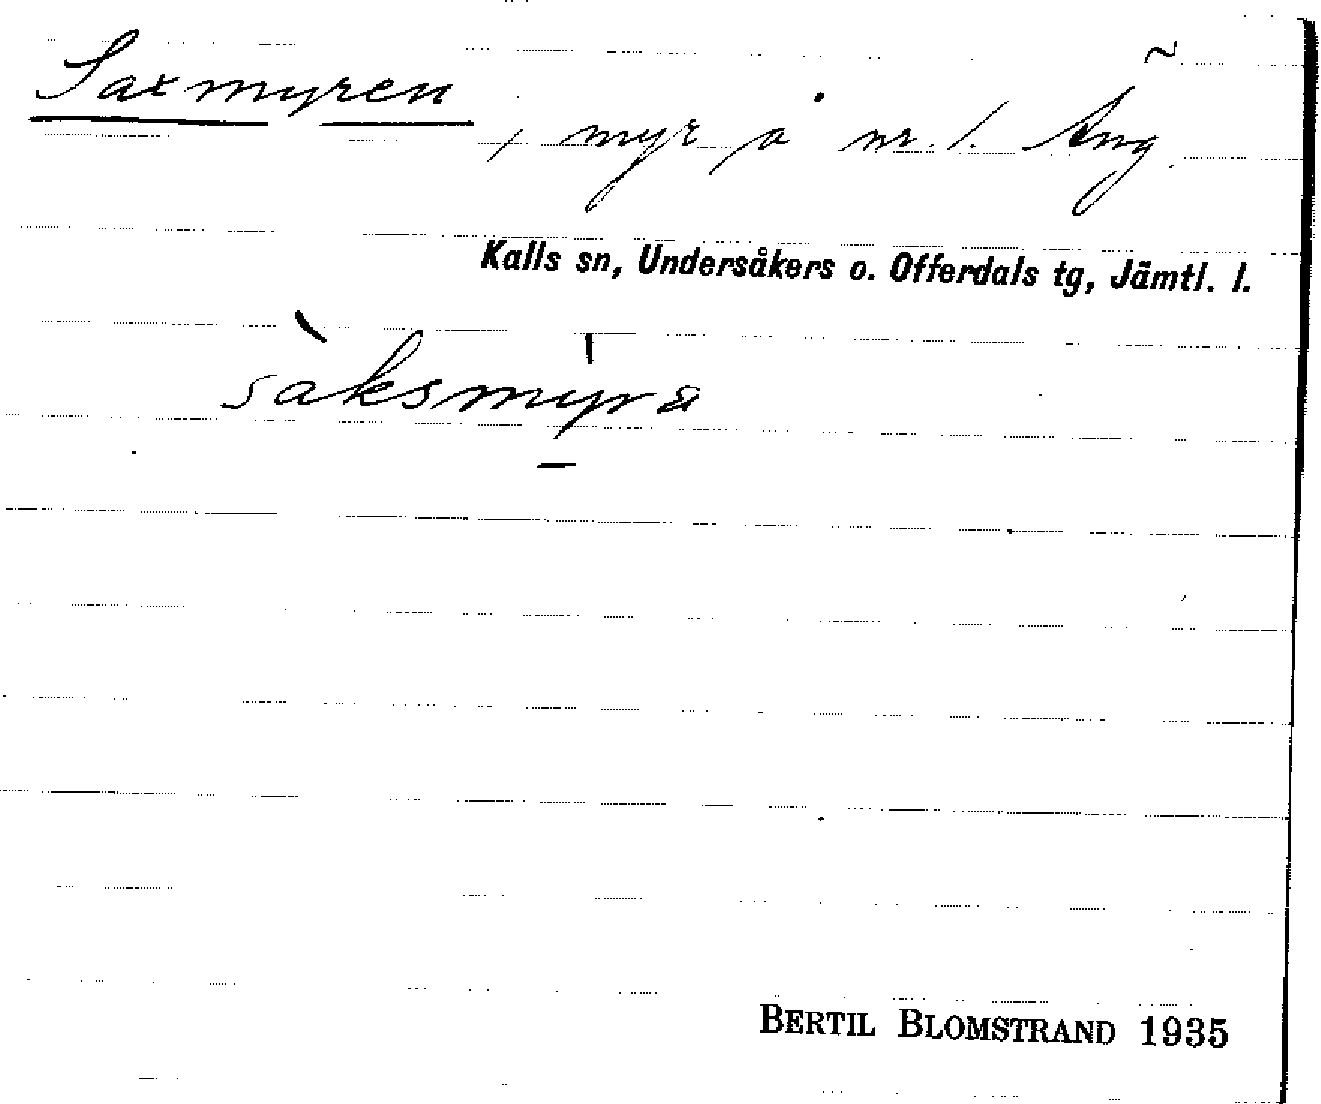 Saxmyren
, myr å nr. 1. Äng
Kalls sn, Undersåkers o. Offerdals tg, Jämtl. l.
sàksmyra
BERTIL BLOMSTRAND 1935